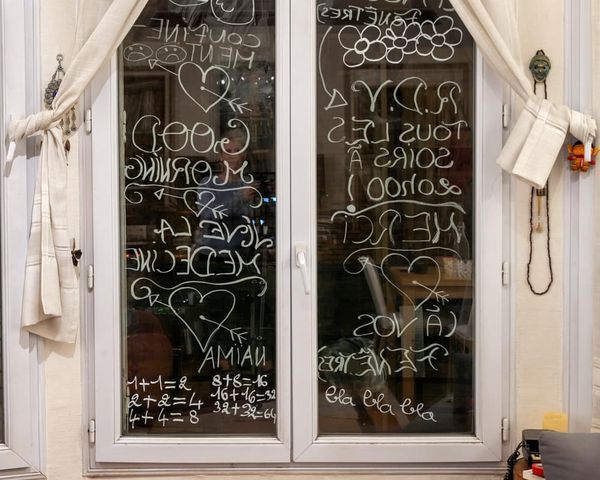 CONFINE
MENT
GOOD
MORNING
VIVE LA
MEDECINE
NAÏMA
1+1=2
2+2=4
4+4=8
8+8=16
16+16=32
32+32=64
FENÊTRES)
R.D.V.
TOUS LES
SOIRS
À
20H00!
MERCI
(À VOS
FENÊTRES
bla bla bla